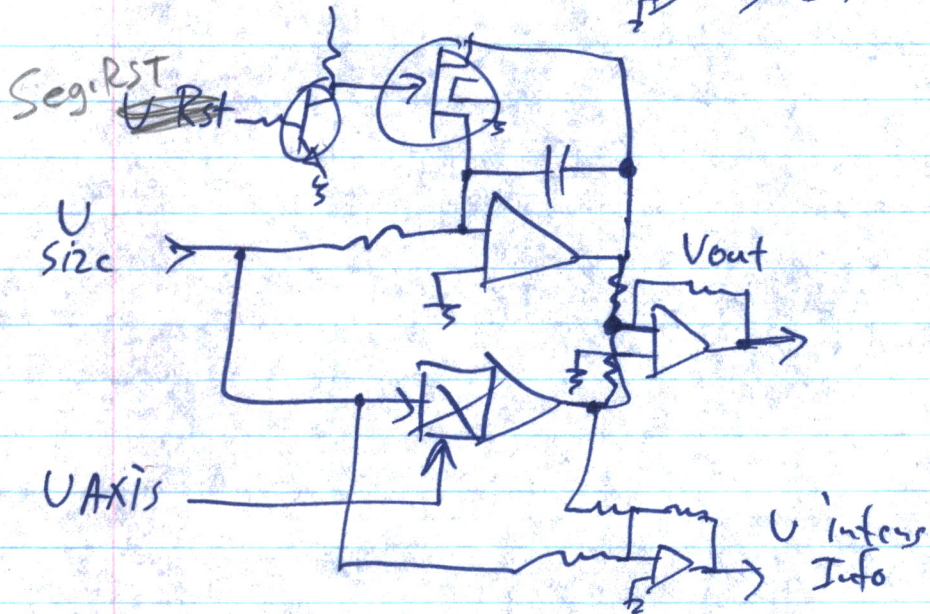 Seg. RST
U Rst
U
Size
Vout
U Axis
U intens
Info